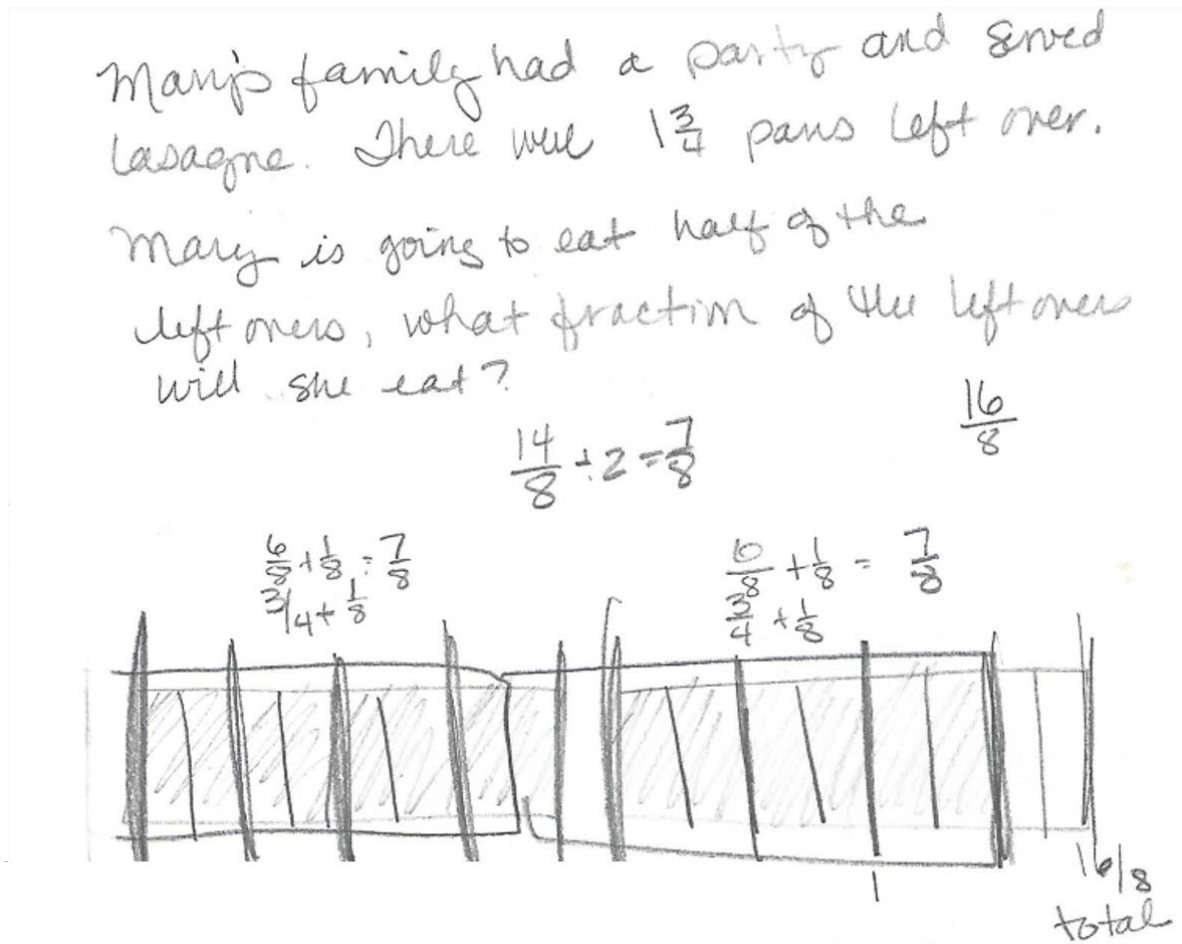 Mary's family had a party and served
lasagne. There were 1 3/4 pans left over.
Mary is going to eat half of the
left overs, what fraction of the left overs
will she eat?
16/8
14/8 ÷ 2 = 7/8
6/8 + 1/8 = 7/8
3/4 + 1/8
+ 1/8 = 7/8
3/4 + 1/8
1
16/8
total